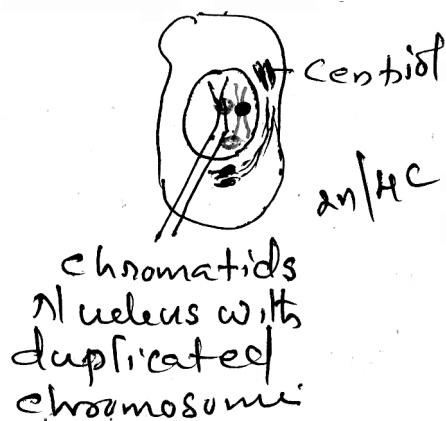 Centriol
2n/4C
chromatids
Nucleus with
duplicated
chromosome